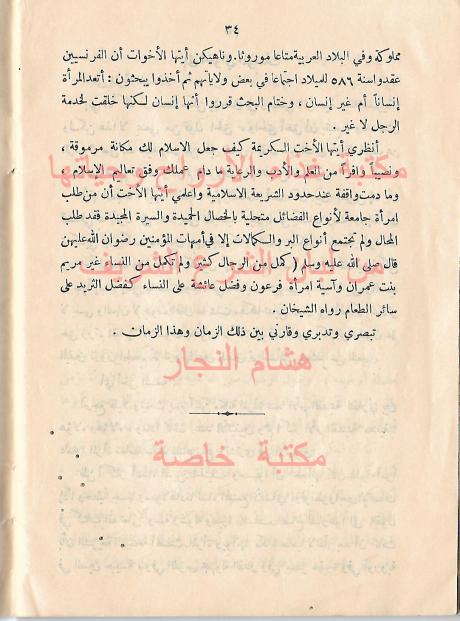 ٣٤
مملوكة وفي البلاد العربية متاعا موروثا. وناهيكن أيتها الأخوات أن الفرنسيين
عقدوا سنة ٥٨٦ للميلاد اجتماعا في بعض ولاياتهم ثم أخذوا يبحثون : أتعد المرأة
إنساناً أم غير إنسان ، وختام البحث قرروا أنها إنسان لكنها خلقت لخدمة
الرجل لا غير .
أنظري أيتها الأخت الكريمة كيف جعل الاسلام لك مكانة مرموقة ،
ونصيباً وافراً من العلم والأدب والرعاية ما دام عملك وفق تعاليم الاسلام ،
وما دمت واقفة عند حدود الشريعة الاسلامية واعلمي أيتها الأخت أن من طلب
امرأة جامعة لأنواع الفضائل متحلية بالخصال الحميدة والسيرة المجيدة فقد طلب
المحال ولم يجتمع أنواع البر والكمالات إلا في أمهات المؤمنين رضوان الله عليهن
قال صلى الله عليه وسلم ( كمل من الرجال كثير ولم تكمل من النساء غير مريم
بنت عمران وآسية امرأة فرعون وفضل عائشة على النساء كفضل الثريد على
سائر الطعام رواه الشيخان .
تبصري وتدبري وقارني بين ذلك الزمان وهذا الزمان .
هشام النجار
مكتبة خاصة